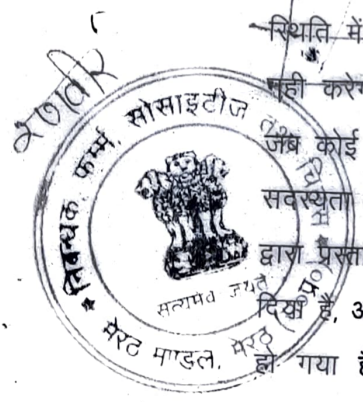 स्थिति में
नही करेग
जब कोई
सदस्यता
द्वारा प्रस्त
दिया है, अ
हो गया है
निबन्धक, फर्म्स, सोसाइटीज
सत्यमेव जयते
मेरठ मण्डल, मेरठ